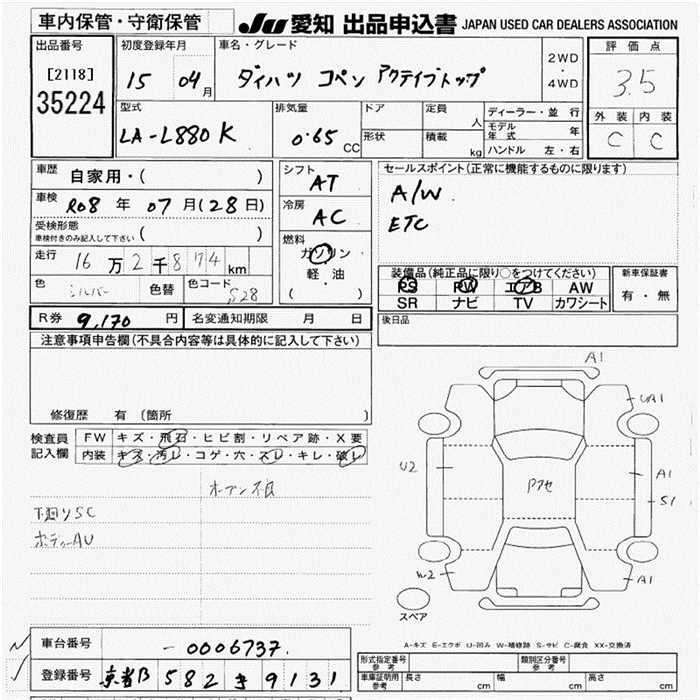 車内保管・守衛保管
JU 愛知 出品申込書 JAPAN USED CAR DEALERS ASSOCIATION
出品番号
[2118]
35224
初度登録年月
15 04月
車名・グレード
ダイハツ コペン アクティブトップ
2WD
・
4WD
評価点
3.5
外装 内装
C C
型式
LA-L880K
排気量
0.65 CC
ドア
形状
定員 人
積載 kg
ディーラー・並行
モデル年式 年
ハンドル 左・右
車歴
自家用・( )
車検
R08 年 07 月(28日)
受検形態
車検付きのみ記入して下さい ( )
走行
16万2千874km
色
シルバー
色替
色コード
S28
シフト
AT
冷房
AC
燃料
ガソリン
軽・油
( )
セールスポイント(正常に機能するものに限ります)
A/W
ETC
装備品(純正品に限り○をつけてください)
PS PW エアB AW
SR ナビ TV カワシート
新車保証書
有・無
R券 9,170 円
名変通知期限 月 日
後日品
注意事項申告欄(不具合内容等は具体的に記入して下さい)
修復歴 有 (箇所 )
検査員
記入欄
FW キズ・飛石・ヒビ割・リペア跡・X要
内装 キズ・汚レ・コゲ・穴・スレ・キレ・破レ
オープン不良
下廻りSC
ボディーAU
A1
UA1
U2
アクセ
A1
S1
W2
A1
スペア
A-キズ E-エクボ U-凹み W-補修跡 S-サビ C-腐食 XX-交換済
車台番号
-0006737.
登録番号
京都 582 き 9131
形式指定番号
参考
類別区分番号
参考
車庫証明用
参考
長さ cm 幅 cm 高さ cm